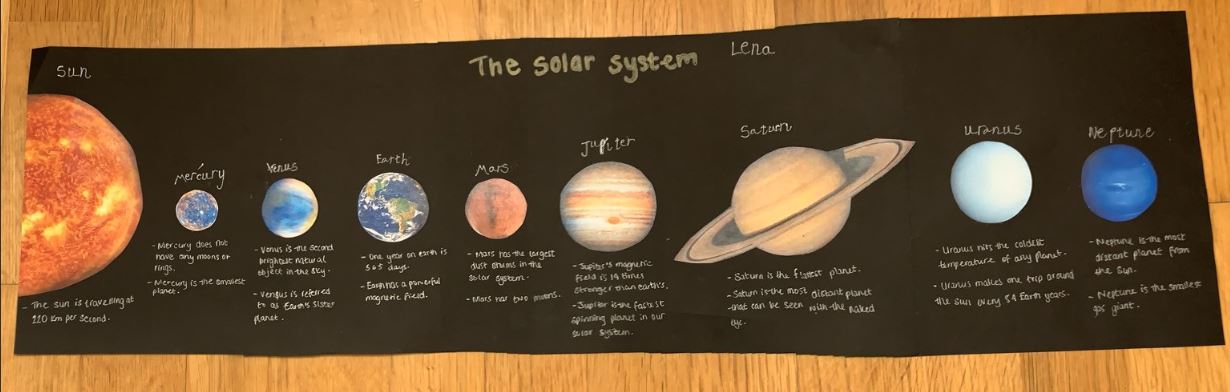 The solar system
Lena
Sun
- The sun is travelling at
220 km per second.
Mercury
- Mercury does not
have any moons or
rings.
- Mercury is the smallest
planet.
Venus
- Venus is the second
brightest natural
object in the sky.
- Venus is referred
to as Earths sister
planet.
Earth
- One year on earth is
365 days.
- Earth has a powerful
magnetic field.
Mars
- Mars has the largest
dust storms in the
solar system.
- Mars has two moons.
Jupiter
- Jupiter's magnetic
field is 14 times
stronger than earths.
- Jupiter is the fastest
spinning planet in our
solar system.
Saturn
- Saturn is the flattest planet.
- Saturn is the most distant planet
that can be seen with the naked
eye.
Uranus
- Uranus hits the coldest
temperature of any planet.
- Uranus makes one trip around
the sun every 84 Earth years.
Neptune
- Neptune is the most
distant planet from
the sun.
- Neptune is the smallest
gas giant.